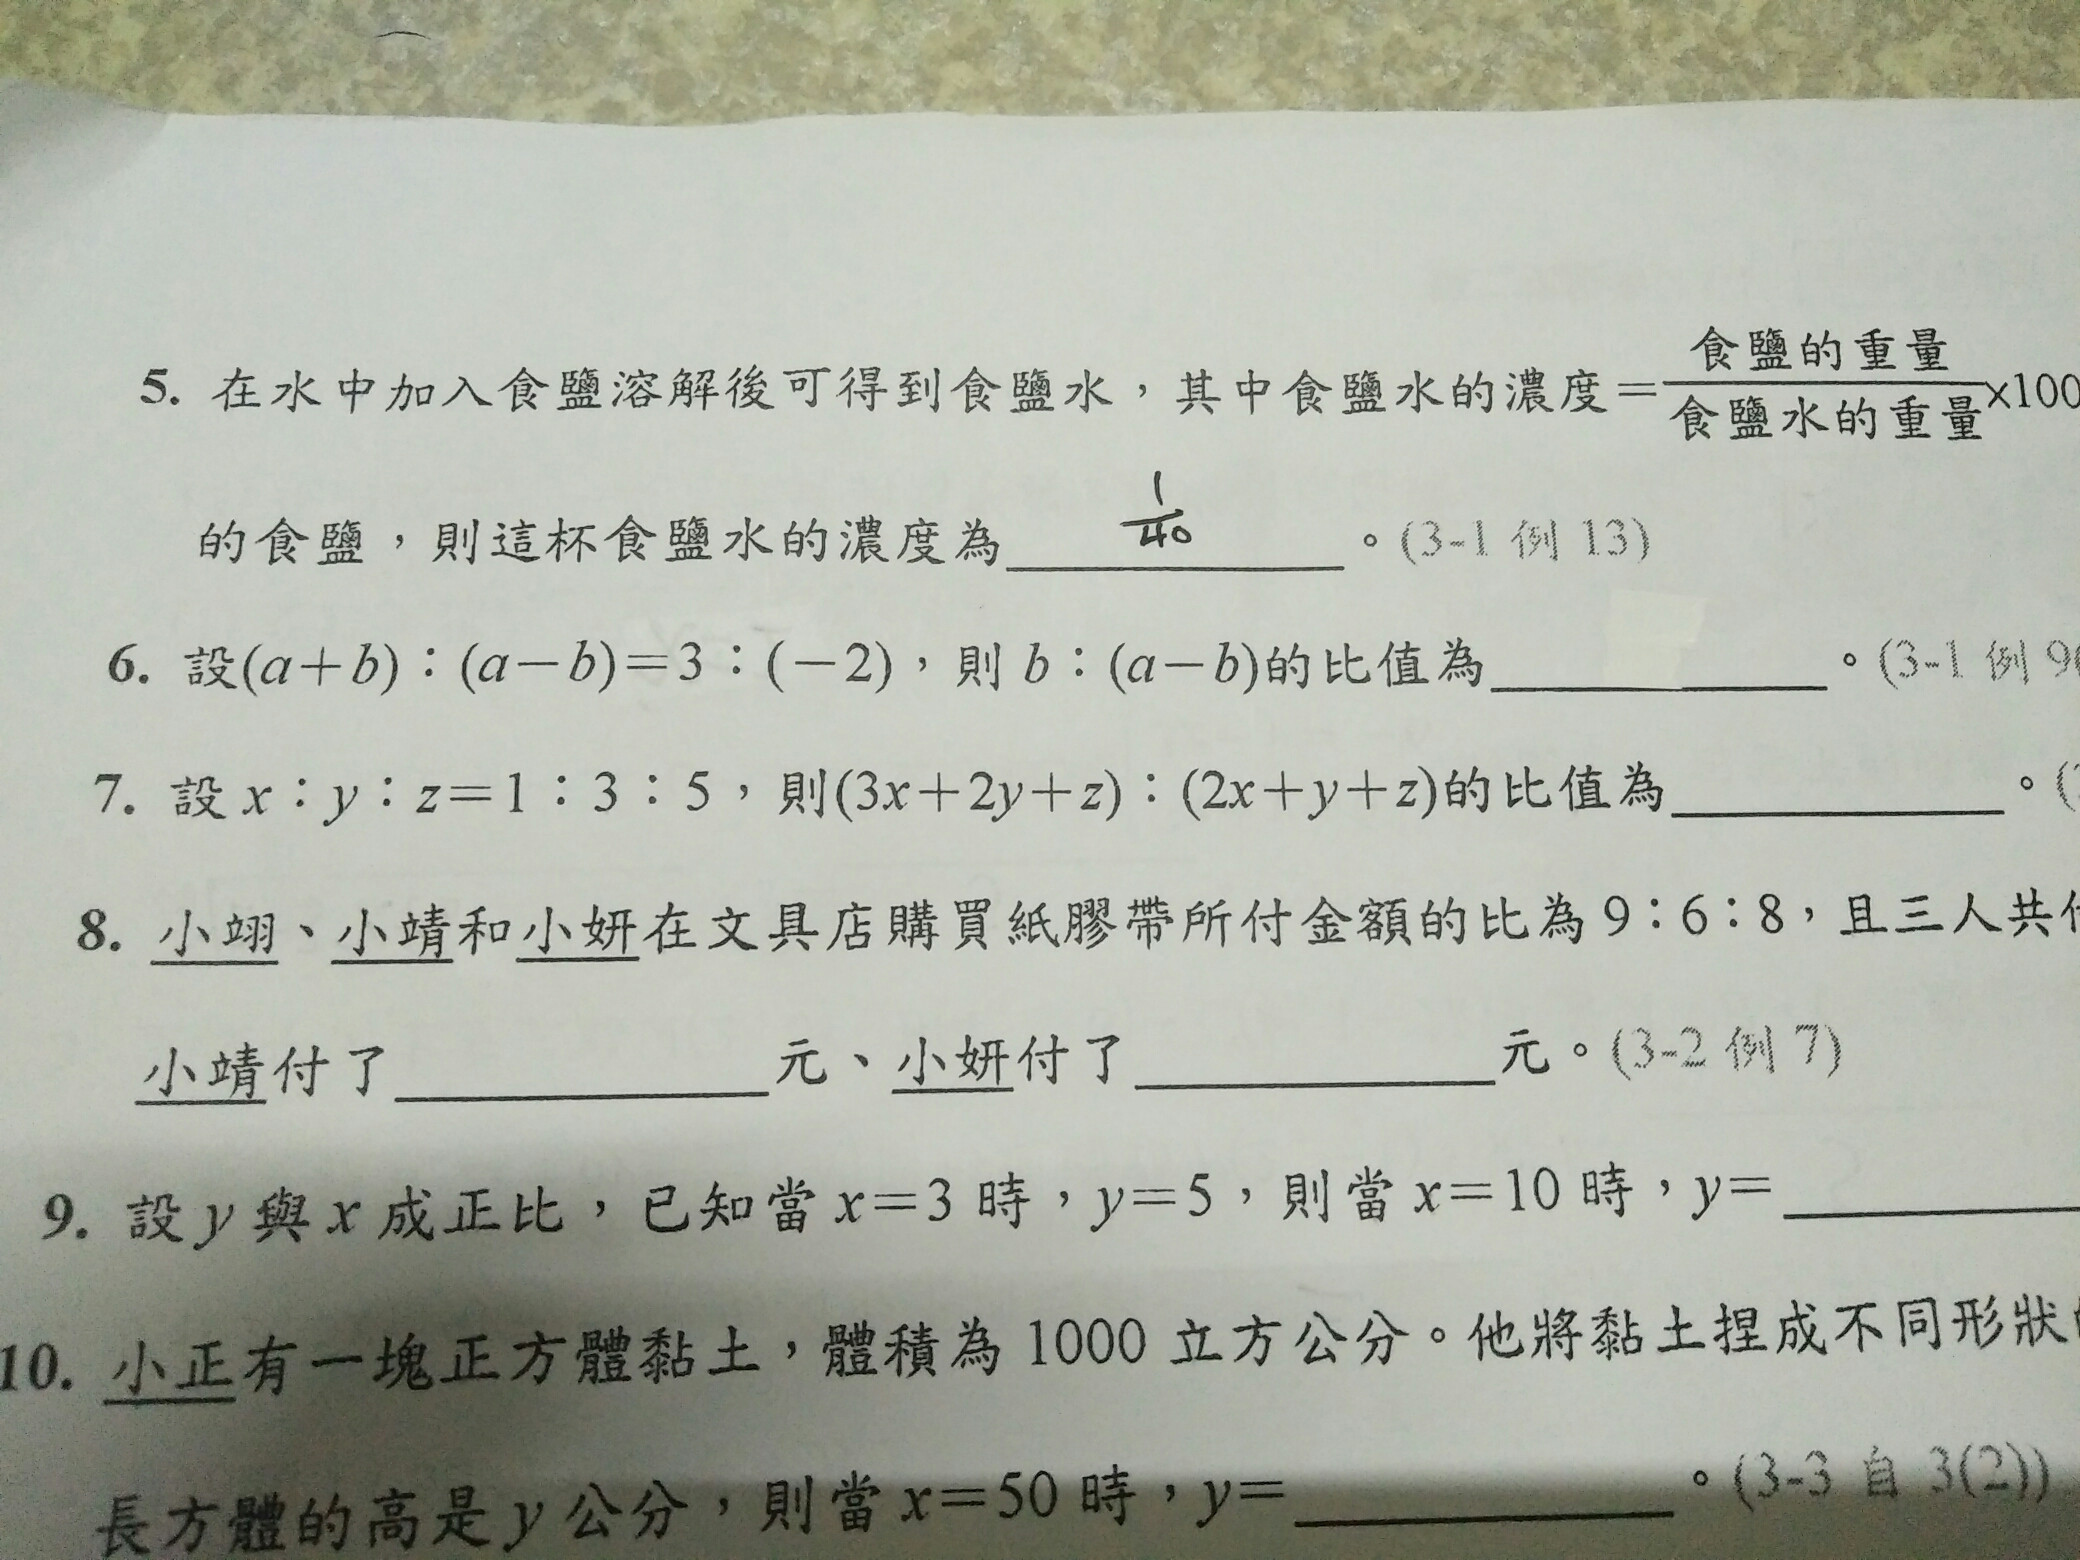 5. 在水中加入食鹽溶解後可得到食鹽水，其中食鹽水的濃度=食鹽的重量/食鹽水的重量×100
的食鹽，則這杯食鹽水的濃度為 1/40 。(3-1 例 13)
6. 設(a+b)：(a-b)=3：(-2)，則 b：(a-b)的比值為______。(3-1 例 9(
7. 設 x：y：z=1：3：5，則(3x+2y+z)：(2x+y+z)的比值為______。(
8. 小翊、小靖和小妍在文具店購買紙膠帶所付金額的比為 9：6：8，且三人共
小靖付了______元、小妍付了______元。(3-2 例 7)
9. 設 y 與 x 成正比，已知當 x=3 時，y=5，則當 x=10 時，y=______
10. 小正有一塊正方體黏土，體積為 1000 立方公分。他將黏土捏成不同形狀
長方體的高是 y 公分，則當 x=50 時，y=______。(3-3 自 3(2))